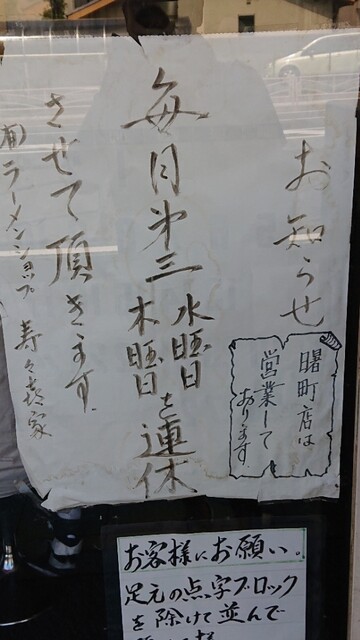 お知らせ
毎月第三水曜日
木曜日を連休
させて頂きます.
㈲ラーメンショップ 寿々㐂家
曙町店は
営業して
おります.
お客様にお願い。
足元の点字ブロック
を除けて並んで